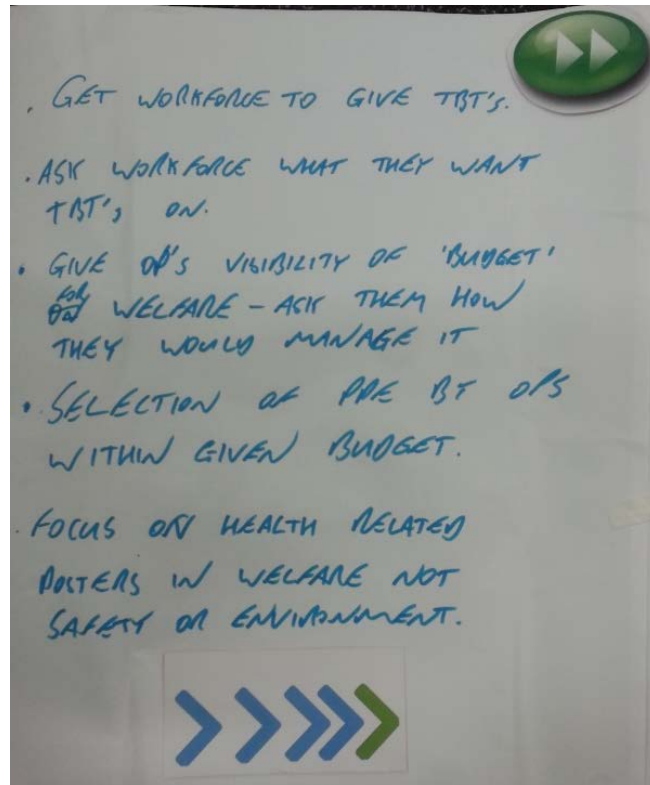 . GET WORKFORCE TO GIVE TBT'S.
. ASK WORKFORCE WHAT THEY WANT
TBT'S ON.
. GIVE OP'S VISIBILITY OF 'BUDGET'
FOR WELFARE – ASK THEM HOW
THEY WOULD MANAGE IT
. SELECTION OF PPE BY OPS
WITHIN GIVEN BUDGET.
. FOCUS ON HEALTH RELATED
POSTERS IN WELFARE NOT
SAFETY OR ENVIRONMENT.